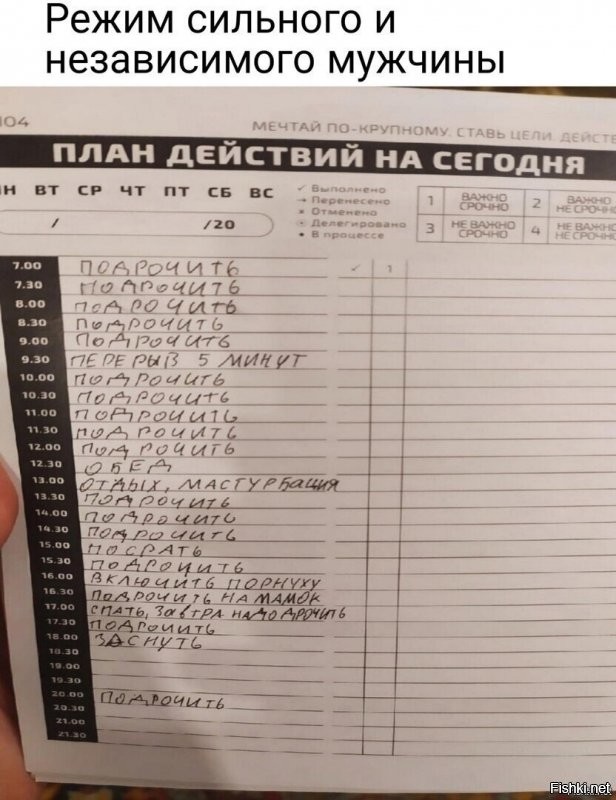 Режим сильного и
независимого мужчины
МЕЧТАЙ ПО-КРУПНОМУ. СТАВЬ ЦЕЛИ. ДЕЙСТВ
ПЛАН ДЕЙСТВИЙ НА СЕГОДНЯ
ПН ВТ СР ЧТ ПТ СБ ВС
/ /20
✓ Выполнено
→ Перенесено
× Отменено
Делегировано
• В процессе
1 ВАЖНО СРОЧНО 2 ВАЖНО НЕ СРОЧНО
3 НЕ ВАЖНО СРОЧНО 4 НЕ ВАЖНО НЕ СРОЧНО
7.00 ПОДРОЧИТЬ ✓ 1
7.30 ПОДРОЧИТЬ
8.00 ПОДРОЧИТЬ
8.30 ПОДРОЧИТЬ
9.00 ПОДРОЧИТЬ
9.30 ПЕРЕРЫВ 5 МИНУТ
10.00 ПОДРОЧИТЬ
10.30 ПОДРОЧИТЬ
11.00 ПОДРОЧИТЬ
11.30 ПОДРОЧИТЬ
12.00 ПОДРОЧИТЬ
12.30 ОБЕД
13.00 ОТДЫХ, МАСТУРБАЦИЯ
13.30 ПОДРОЧИТЬ
14.00 ПОДРОЧИТЬ
14.30 ПОДРОЧИТЬ
15.00 ПОСРАТЬ
15.30 ПОДРОЧИТЬ
16.00 ВКЛЮЧИТЬ ПОРНУХУ
16.30 ПОДРОЧИТЬ НА МАМОК
17.00 СПАТЬ, ЗАВТРА НАДО ДРОЧИТЬ
17.30 ПОДРОЧИТЬ
18.00 ЗАСНУТЬ
18.30
19.00
19.30
20.00 ПОДРОЧИТЬ
20.30
21.00
21.30
Fishki.net